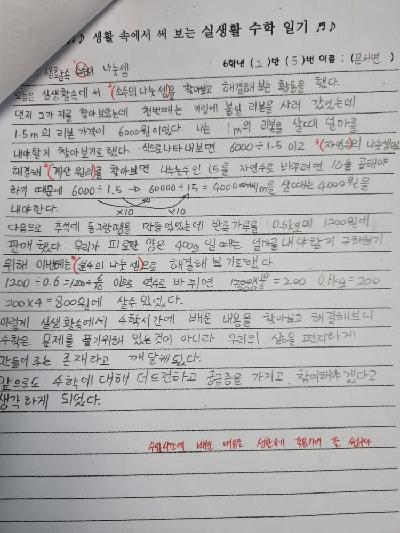 ♪ 생활 속에서 써 보는 실생활 수학 일기 ♬♪
6학년 (2)반 (5)번 이름 : (문서연)
: 생활속 소수의 나눗셈
오늘은 실생활속에서 써 (소수의 나눗셈)을 찾아보고 해결해 보는 활동을 했다.
먼저 2가지를 찾아보았는데 첫번째는 리본을 사러 갔었는데
1.5m의 리본 가격이 6000원이었다. 나는 1m의 리본을 살때 얼마를
내야할지 찾아보기로 했다. 식으로 나타내보면 6000÷1.5 이고 (자연수)의 나눗셈
해결해 (계산 원리)를 찾아보면 나누는수인 1.5를 자연수로 바꾸려면 10을 곱해야
하기 때문에 6000÷1.5 → 60000÷15 = 4000 1m를 살때는 4000원을
내야한다.
×10 ×10
다음으로 추석에 동그랑땡을 만들었었는데 반죽가루를 0.6kg에 1200원에
판매했다. 우리가 필요한 양은 400g 일때는 얼마를 내야할지 구해보기
위해 이번에는 (분수의 나눗셈)으로 해결해 보기로했다
1200÷0.6 = 1200÷6/10 이므로 역수로 바꾸면 1200×10/6 = 200 0.1kg=200
200×4=800원에 살수 있었다.
이렇게 실생활속에서 수학시간에 배운 내용을 찾아보고 해결해보니
수학은 문제를 풀기위해 있는것이 아니라 우리의 삶을 편리하게
만들어 주는 존재라고 깨달게되었다.
앞으로도 수학에 대해 더도전하고 궁금증을 가지고 참여해야겠다고
생각하게 되었다.
수업시간에 배운 내용을